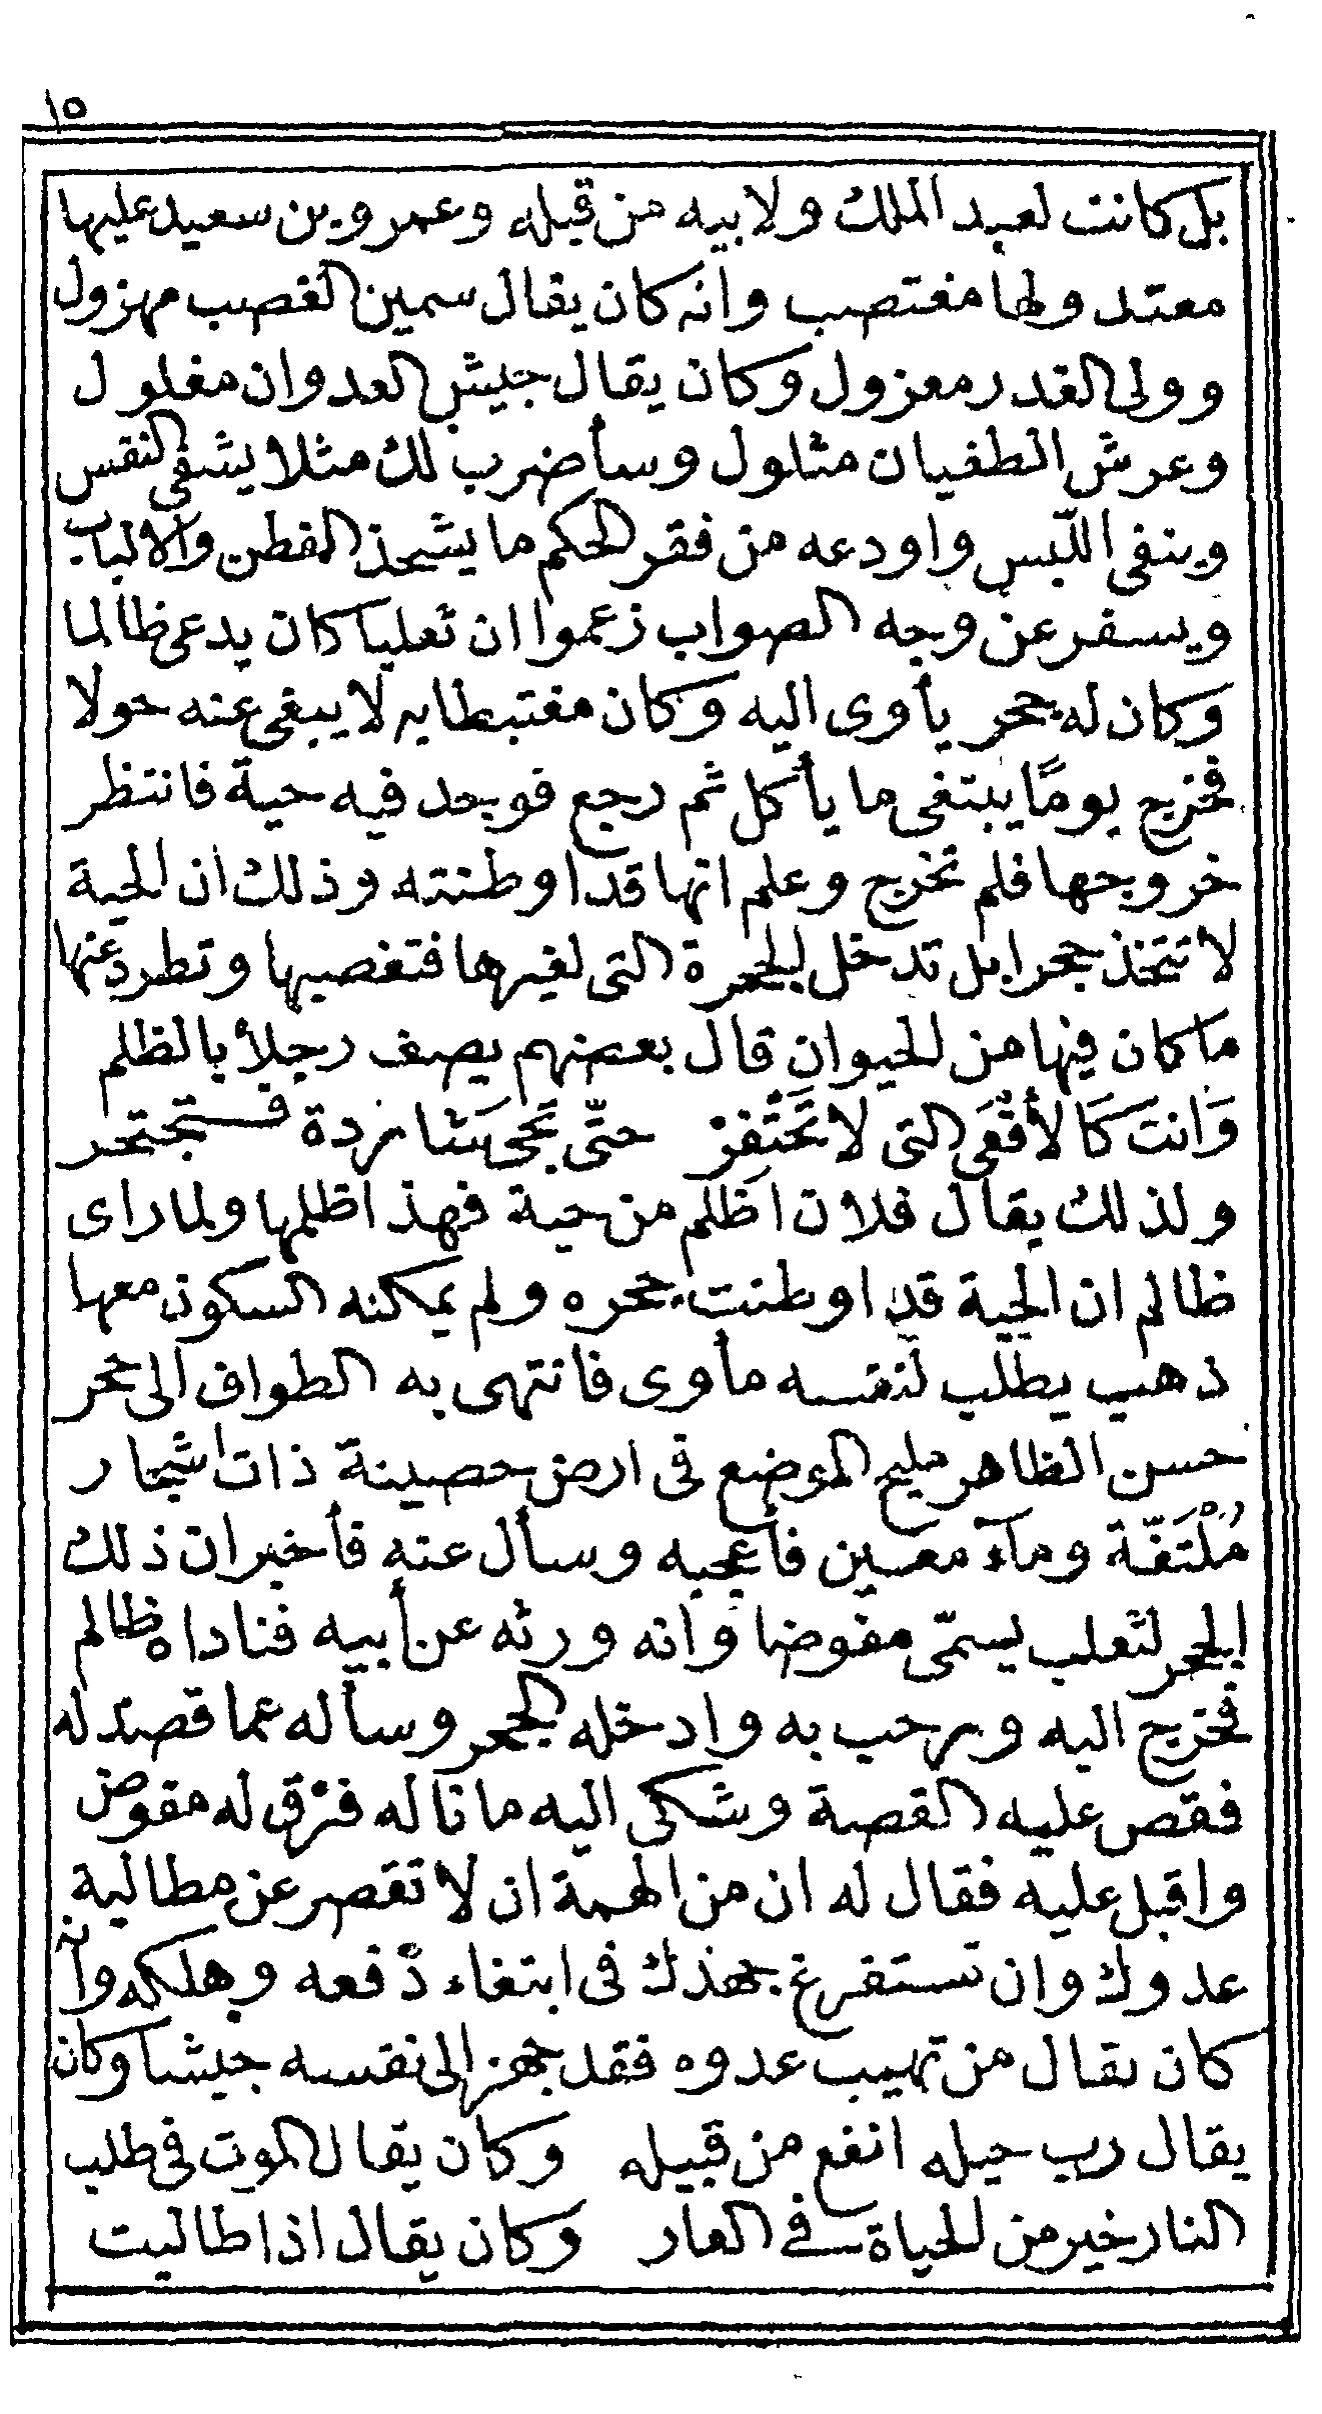 ١٥
بل كانت لعبد الملك ولابيه من قبله وعمرو بن سعيد عليها
معتد ولها مغتصب وانه كان يقال سمين الغصب مهزول
وولى الغدر معزول وكان يقال جيش العدوان مغلول
وعرش الطغيان مثلول وسأضرب لك مثلا يشفى النفس
وينفى اللّبس واودعه من فقر الحكم ما يشحذ الفطن والالباب
ويسفر عن وجه الصواب زعموا ان ثعلبا كان يدعى ظالما
وكان له جحر يأوى اليه وكان مغتبطا به لا يبغى عنه حولا
فخرج يومًا يبتغى ما يأكل ثم رجع فوجد فيه حية فانتظر
خروجها فلم تخرج وعلم انها قد اوطنته وذلك ان الحية
لا تتخذ جحرا بل تدخل الجحرة التى لغيرها فتغصبها وتطرد عنها
ما كان فيها من الحيوان قال بعضهم يصف رجلاً بالظلم
وَانتَ كَالأفْعَى التى لا تَحْتَفِرْ حتّى تَجى سَا ردة فتجتحر
ولذلك يقال فلان اظلم من حية فهذا ظلمها ولما راى
ظالم ان الحية قد اوطنت جحره ولم يمكنه السكون معها
ذهب يطلب لنفسه مأوى فانتهى به الطواف الى جحر
حسن الظاهر مليح الموضع فى ارض حصينة ذات اشجار
مُلْتَفّة وماء معين فأعجبه وسأل عنه فأخبر ان ذلك
الجحر لثعلب يسمّى مفوضا وانه ورثه عن أبيه فناداه ظالم
فخرج اليه ورحب به وادخله الجحر وسأله عما قصد له
فقص عليه القصة وشكى اليه ما ناله فرق له مفوض
واقبل عليه فقال له ان من الهمة ان لا تقصر عن مطالبة
عدوك وان تستفرغ جهدك فى ابتغاء دفعه وهلكه وانه
كان يقال من تهيب عدوه فقد جهز الى نفسه جيشا وكان
يقال رب حيله انفع من قبيله وكان يقال الموت فى طلب
النار خير من الحياة فى العار وكان يقال اذا طالبت